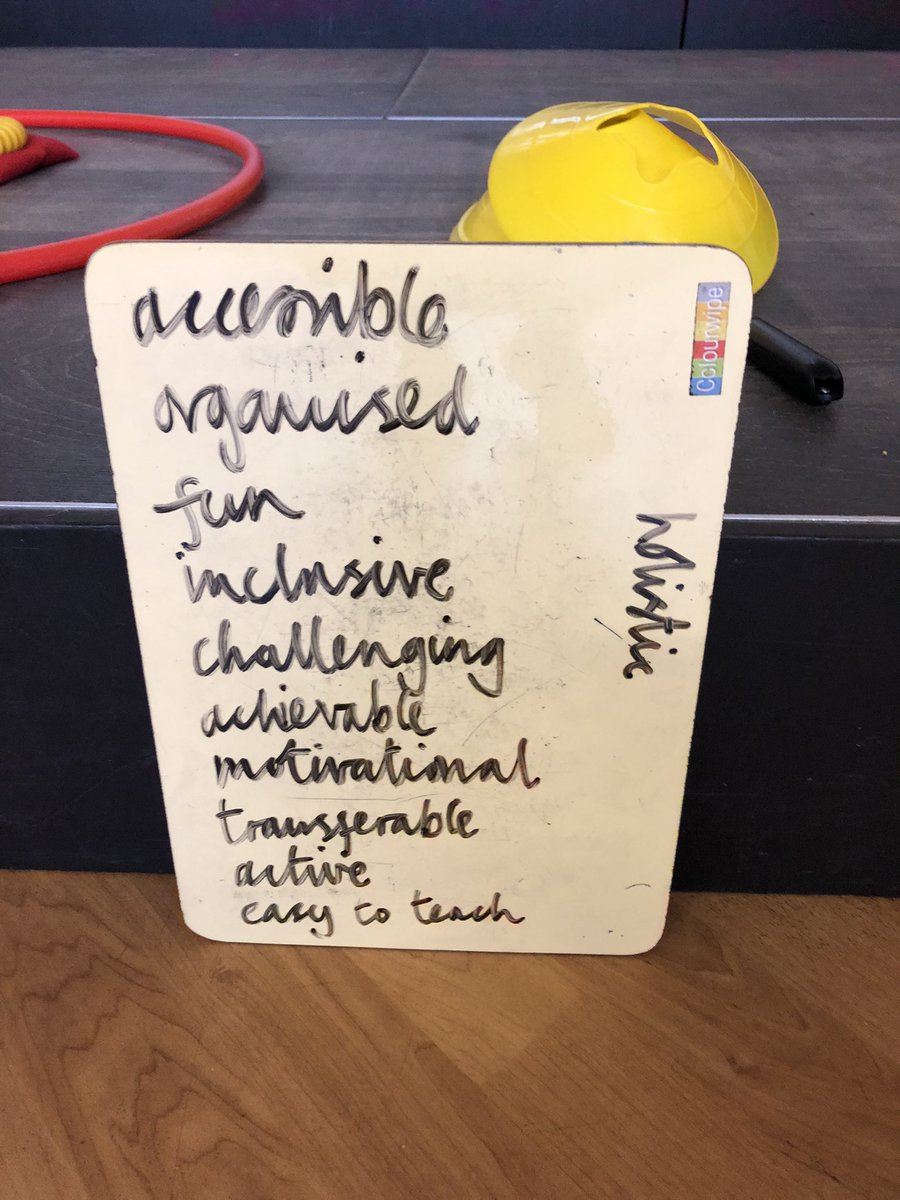 accessible
organised
fun
inclusive
challenging
achievable
motivational
transferable
active
easy to teach
holistic
Colourwipe